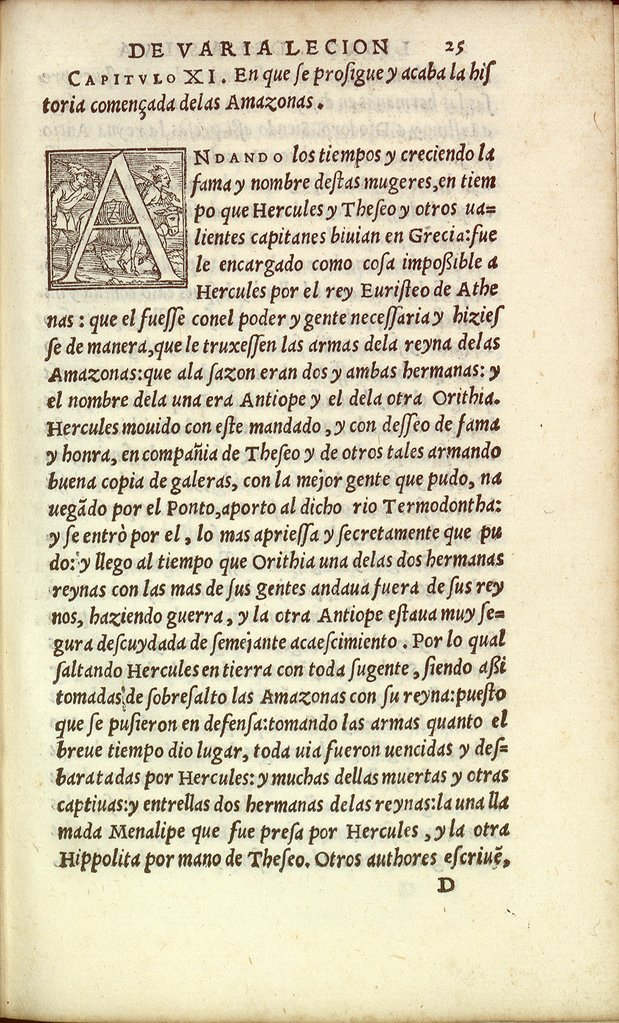 DE VARIA LECION 25
CAPITVLO XI. En que ſe proſigue y acaba la hiſ
toria començada delas Amazonas.
ANDANDO los tiempos y creciendo la
fama y nombre deſtas mugeres,en tiem
po que Hercules y Theſeo y otros ua=
lientes capitanes biuian en Grecia:fue
le encargado como coſa impoßible a
Hercules por el rey Euriſteo de Athe
nas: que el fueſſe conel poder y gente neceſſaria y hizieſ
ſe de manera,que le truxeſſen las armas dela reyna delas
Amazonas:que ala ſazon eran dos y ambas hermanas: y
el nombre dela una era Antiope y el dela otra Orithia.
Hercules mouido con eſte mandado, y con deſſeo de fama
y honra, en compañia de Theſeo y de otros tales armando
buena copia de galeras, con la mejor gente que pudo, na
uegãdo por el Ponto,aporto al dicho rio Termodontha:
y ſe entrò por el, lo mas aprieſſa y ſecretamente que pu
do: y llego al tiempo que Orithia una delas dos hermanas
reynas con las mas de ſus gentes andaua fuera de ſus rey
nos, haziendo guerra, y la otra Antiope eſtaua muy ſe=
gura deſcuydada de ſemejante acaeſcimiento. Por lo qual
ſaltando Hercules en tierra con toda ſugente, ſiendo aßi
tomadas de ſobreſalto las Amazonas con ſu reyna:pueſto
que ſe puſieron en defenſa:tomando las armas quanto el
breue tiempo dio lugar, toda uia fueron uencidas y deſ=
baratadas por Hercules: y muchas dellas muertas y otras
captiuas:y entrellas dos hermanas delas reynas:la una lla
mada Menalipe que fue preſa por Hercules, y la otra
Hippolita por mano de Theſeo. Otros authores eſcriuẽ,
D